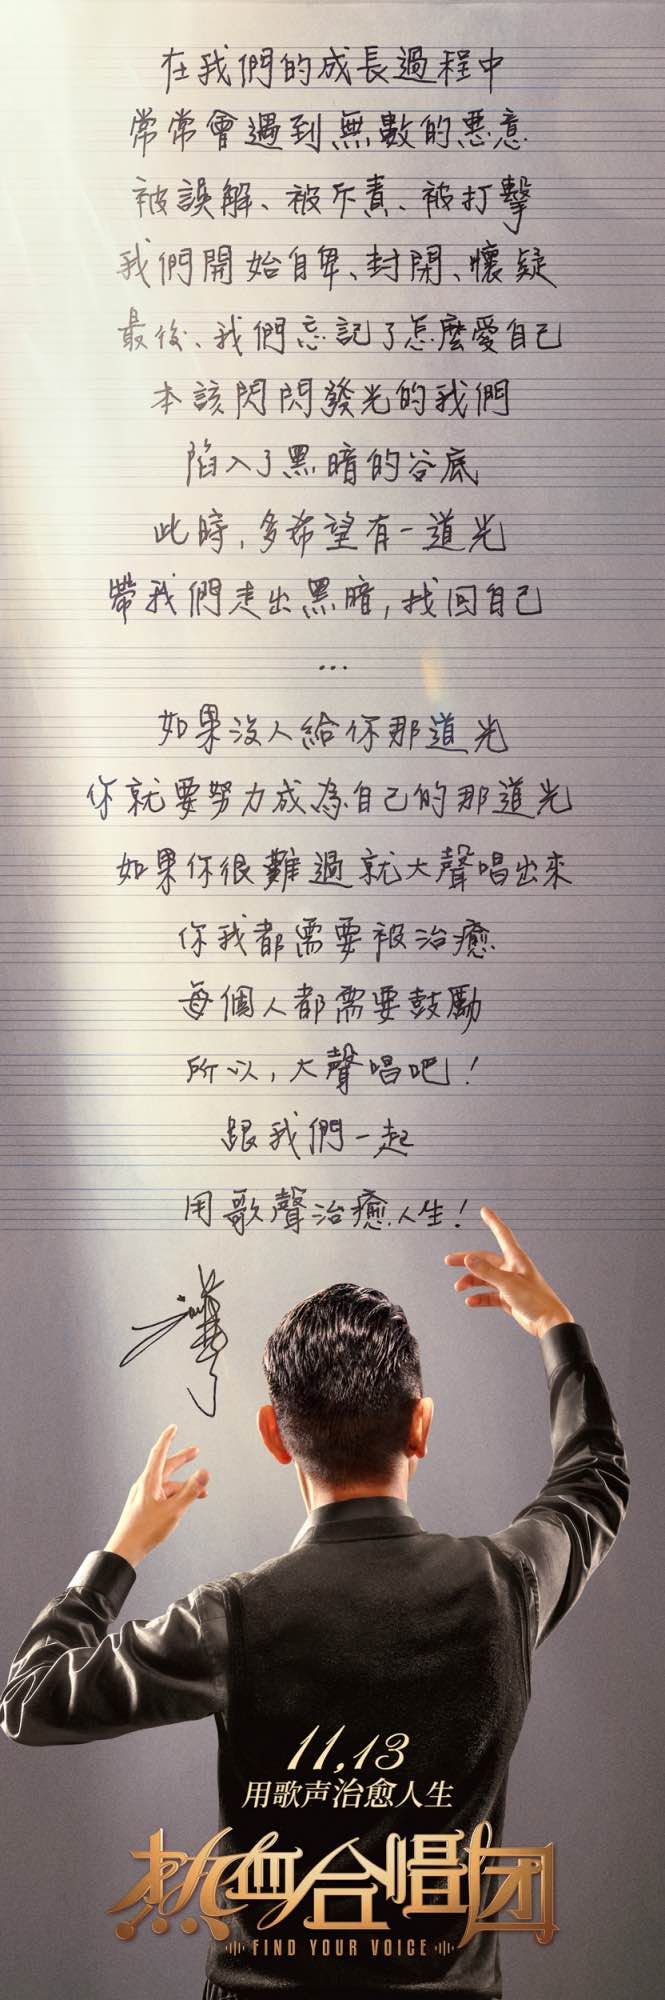 在我們的成長過程中
常常會遇到無數的惡意
被誤解、被斥責、被打擊
我們開始自卑、封閉、懷疑
最後、我們忘記了怎麼愛自己
本該閃閃發光的我們
陷入了黑暗的谷底
此時,多希望有一道光
帶我們走出黑暗,找回自己
...
如果沒人給你那道光
你就要努力成為自己的那道光
如果你很難過就大聲唱出來
你我都需要被治癒
每個人都需要鼓勵
所以,大聲唱吧!
跟我們一起
用歌聲治癒人生!
11,13
用歌声治愈人生
热血合唱团
FIND YOUR VOICE